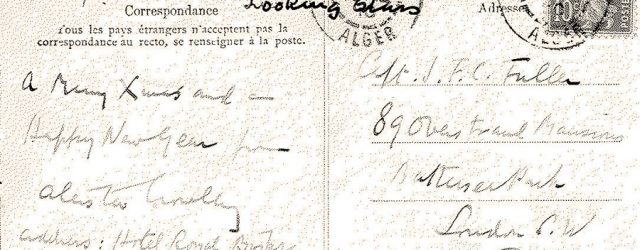 Looking Glass
Correspondance
Tous les pays étrangers n'acceptent pas la
correspondance au recto, se renseigner à la poste.
A Merry Xmas and a
Happy New Year from
Aleister Crowley
address: Hotel Royal
Adresse
ALGER
ALGER
10
Capt. J. F. C. Fuller
89 Overstrand Mansions
Battersea Park
London S.W